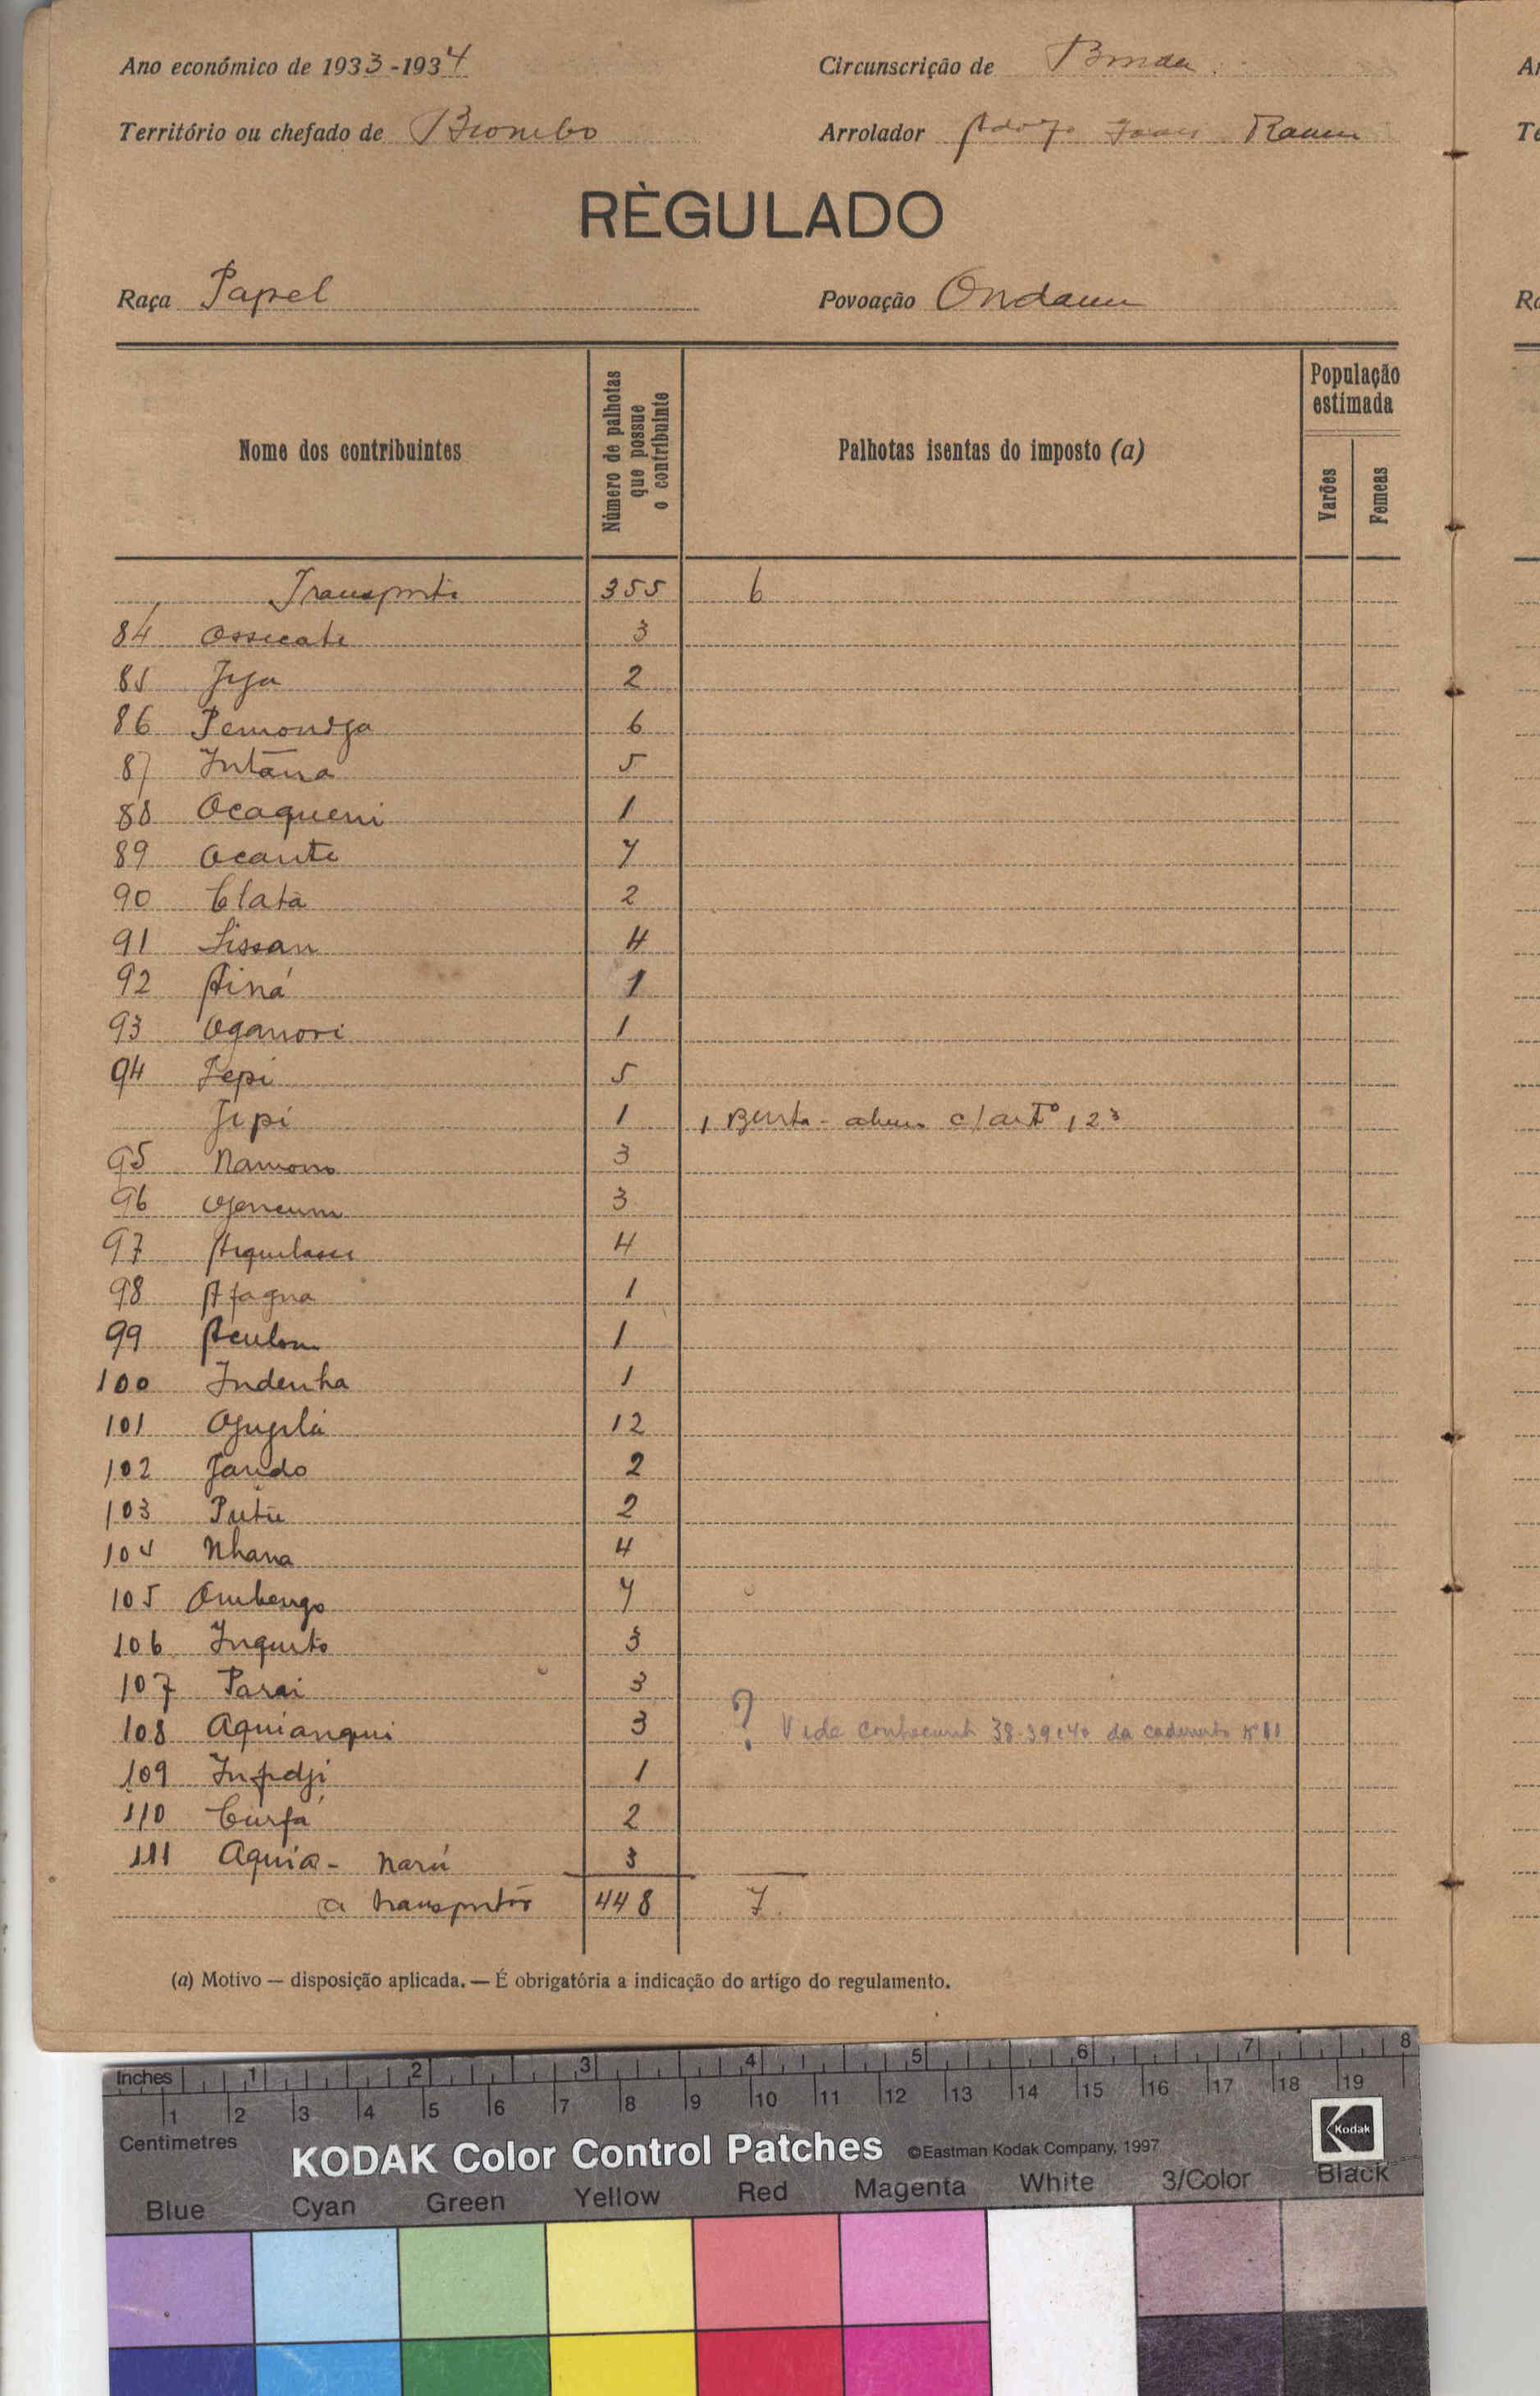 Ano económico de 1933-1934
Circunscrição de
Território ou chefado de Biombo
Arrolador Adolfo Ramos
RÈGULADO
Raça Papel
Povoação Ondame
Nome dos contribuintes
Número de palhotas que possue o contribuinte
Palhotas isentas do imposto (a)
População estimada
Varões
Femeas
Transporte 355 6
84 Ossecate 3
85 2
86 6
87 Intana 5
88 Ocaqueni 1
89 Ocante 7
90 Clatà 2
91 Lissan 4
92 Ainá 1
93 Oganori 1
94 Jepi 5
Jepi 1 1 c/ artº 123
95 3
96 3
97 4
98 Afagna 1
99 1
100 Indenha 1
101 12
102 Jando 2
103 2
104 Nhana 4
105 Ombengo 7
106 3
107 Parai 3
108 Aquianqui 3 ? Vide 38-39 e 40 da caderneta nº 11
109 1
110 Curfá 2
111 Aquia-narú 3
a transportar 448 7
(a) Motivo — disposição aplicada. — É obrigatória a indicação do artigo do regulamento.
Inches 1 2 3 4 5 6 7 8
1 2 3 4 5 6 7 8 9 10 11 12 13 14 15 16 17 18 19
Centimetres
KODAK Color Control Patches ©Eastman Kodak Company, 1997
Kodak
Blue Cyan Green Yellow Red Magenta White 3/Color Black